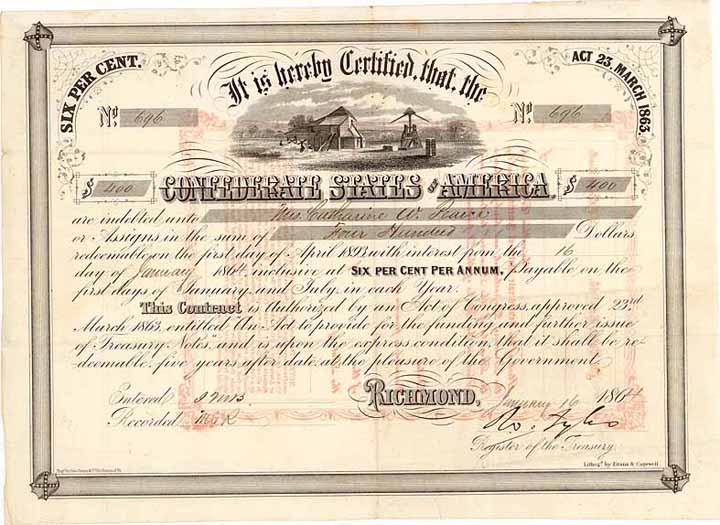 SIX PER CENT.
It is hereby Certified, that, the
ACT 23, MARCH 1863.
No. 696
No. 696
$ 400
CONFEDERATE STATES OF AMERICA,
$ 400
are indebted unto Mrs. Catharine W.
or Assigns in the sum of Four Hundred Dollars
redeemable on the first day of April 1893 with interest from the 16
day of January 1864 inclusive at SIX PER CENT PER ANNUM, Payable on the
first days of January and July, in each Year.
This Contract is Authorized by an Act of Congress, approved 23rd
March 1863, entitled "An Act to provide for the funding and further issue
of Treasury Notes" and is upon the express condition, that it shall be re-
deemable, five years after date, at the pleasure of the Government.
Entered
Recorded
RICHMOND, January 16 1864
R. Tyler
Register of the Treasury.
Lithog'd by Evans & Cogswell